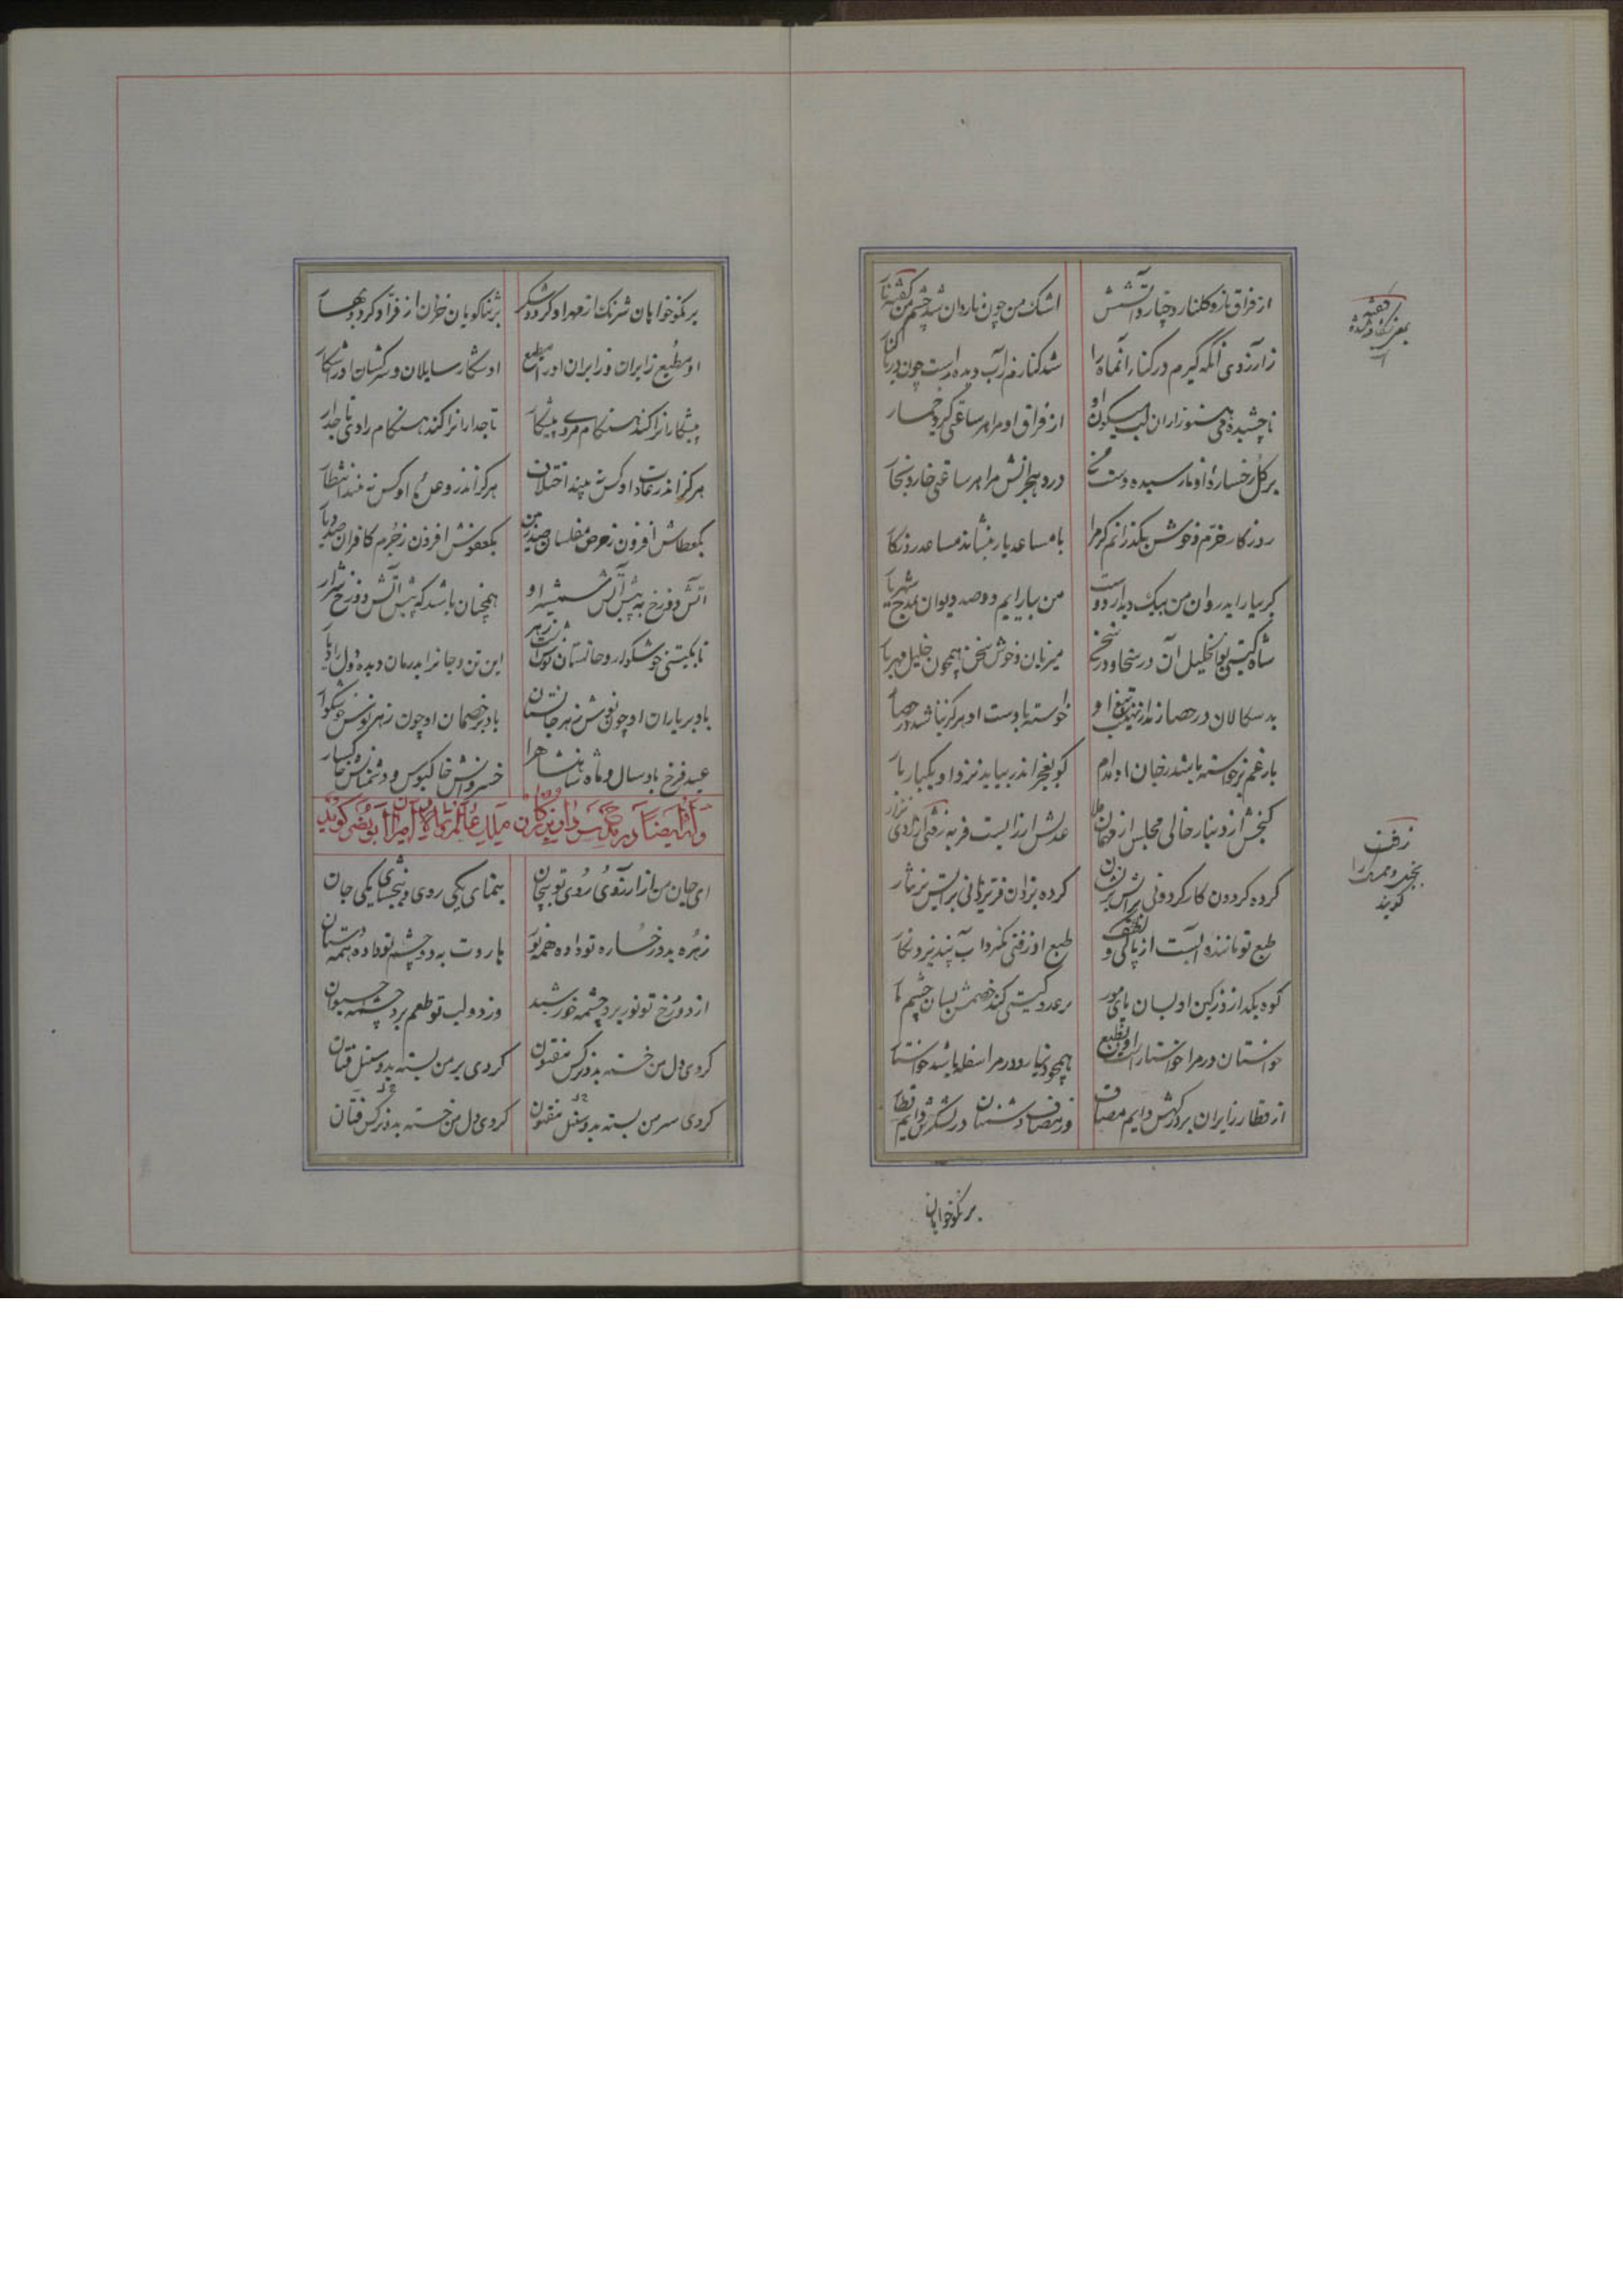 از فراق نازو کلنار دخار و آتشش اشک من چون ناروان شد چشم من کفته نار
زآرزوی آنکه گیرم در کنار آنماه را شد کنارم زآب دیده راست چون دریا کنار
ناچشیده می هنوز از ان لب میگون او از فراق او مرا هر ساعتی گیرد خمار
بر گل رخساره او نارسیده دست من درد هجرانش مرا هر ساعتی خارد بخار
روزگار خرم و خوش بگذرانم گر مرا با مساعد یار بنشاند مساعد روزگار
گر بیاراید روان من بیک دیدار دوست من بیارایم دو صد دیوان بمدح شهریار
شاه گیتی بوالخلیل آن در سخا و در سخن میزبان و خوش سخن همچون خلیل مهربا
بد سکالان در حصار از نهیب تیغ او خواسته با دست او هرگز نباشد در حصا
بار غم برخواسته باشد زجان او مدام کو بفخر اندر بیاید نزد او یکبار بار
گنجش از دینار خالی مجلس از
کرده گردون کار کردونی کرده یزدان فر یزدانی برایش بر نثار
طبع تو ماننده آبست از پاکی و لطف طبع او زفتی نگیرد آب نپذیرد نکار
کوه بگدازد ز کین او بسان پای مور بر عدو گیتی کند خصمش بسان چشم ما
خواستان در مرا خواستار است او بطبع همچو دینار و درم را سفله باشد خواستا
از قطار زایران بر درگهش دایم مصاف وز مصاف دشمنان در لشکرش دایم قطا
کفته
بمعنی شکافته شده
است
زفت
بخیل و ممسک را
گویند
بر نکوخواهان
بر نکوخواهان شرنک از مهر او گردد شکر بر ثناگویان خزان از فر او گردد بهسا
او مطیع زایران و زایران او را مطیع او شکار سایلان و سرکشان او را شکار
پیشکارانرا کند هنگام مردی پیشکار تاجدارانرا کند هنگام رادی تاجدار
هرگز اندر عادت او کس نه بیند اختلاف هرگز اندر وعده او کس نه بیند انتظار
یکعطاش افزون زحرص مفلسان صد بار من یکعفوش افزون زجرم کافران صد بار
آتش دوزخ به پیش آتش شمشیر او همچنان باشد که پیش آتش دوزخ شرار
تا بگیتی خوشگوار و جانستان نوش است زهر این تن و جانرا بدرمان دیده و دل را
باد بر یاران او چون نوش زهر جانستان باد بر خصمان او چون زهر نوش خوشکوا
عید فرخ باد سال و ماه شاهنشاه را خسروانش خاکبوس و دشمنانش خاکسار
وله ایضا در مدح
ای جان من از آرزوی روی تو بیجان بنمای یکی روی و ببخشای یکی جان
زهره بدو رخساره تو داده همه نور هاروت به دو چشم تو داده همه دستان
از دو رخ تو نور برد چشمه خورشید وز دو لب تو طعم برد چشمه حیوان
کردی دل من خسته بدو نرکس مفتون کردی بر من بسته بدو سنبل فتان
کردی سر من بسته بدو سنبل مفتون کردی دل من خسته بدو نرکس فتان